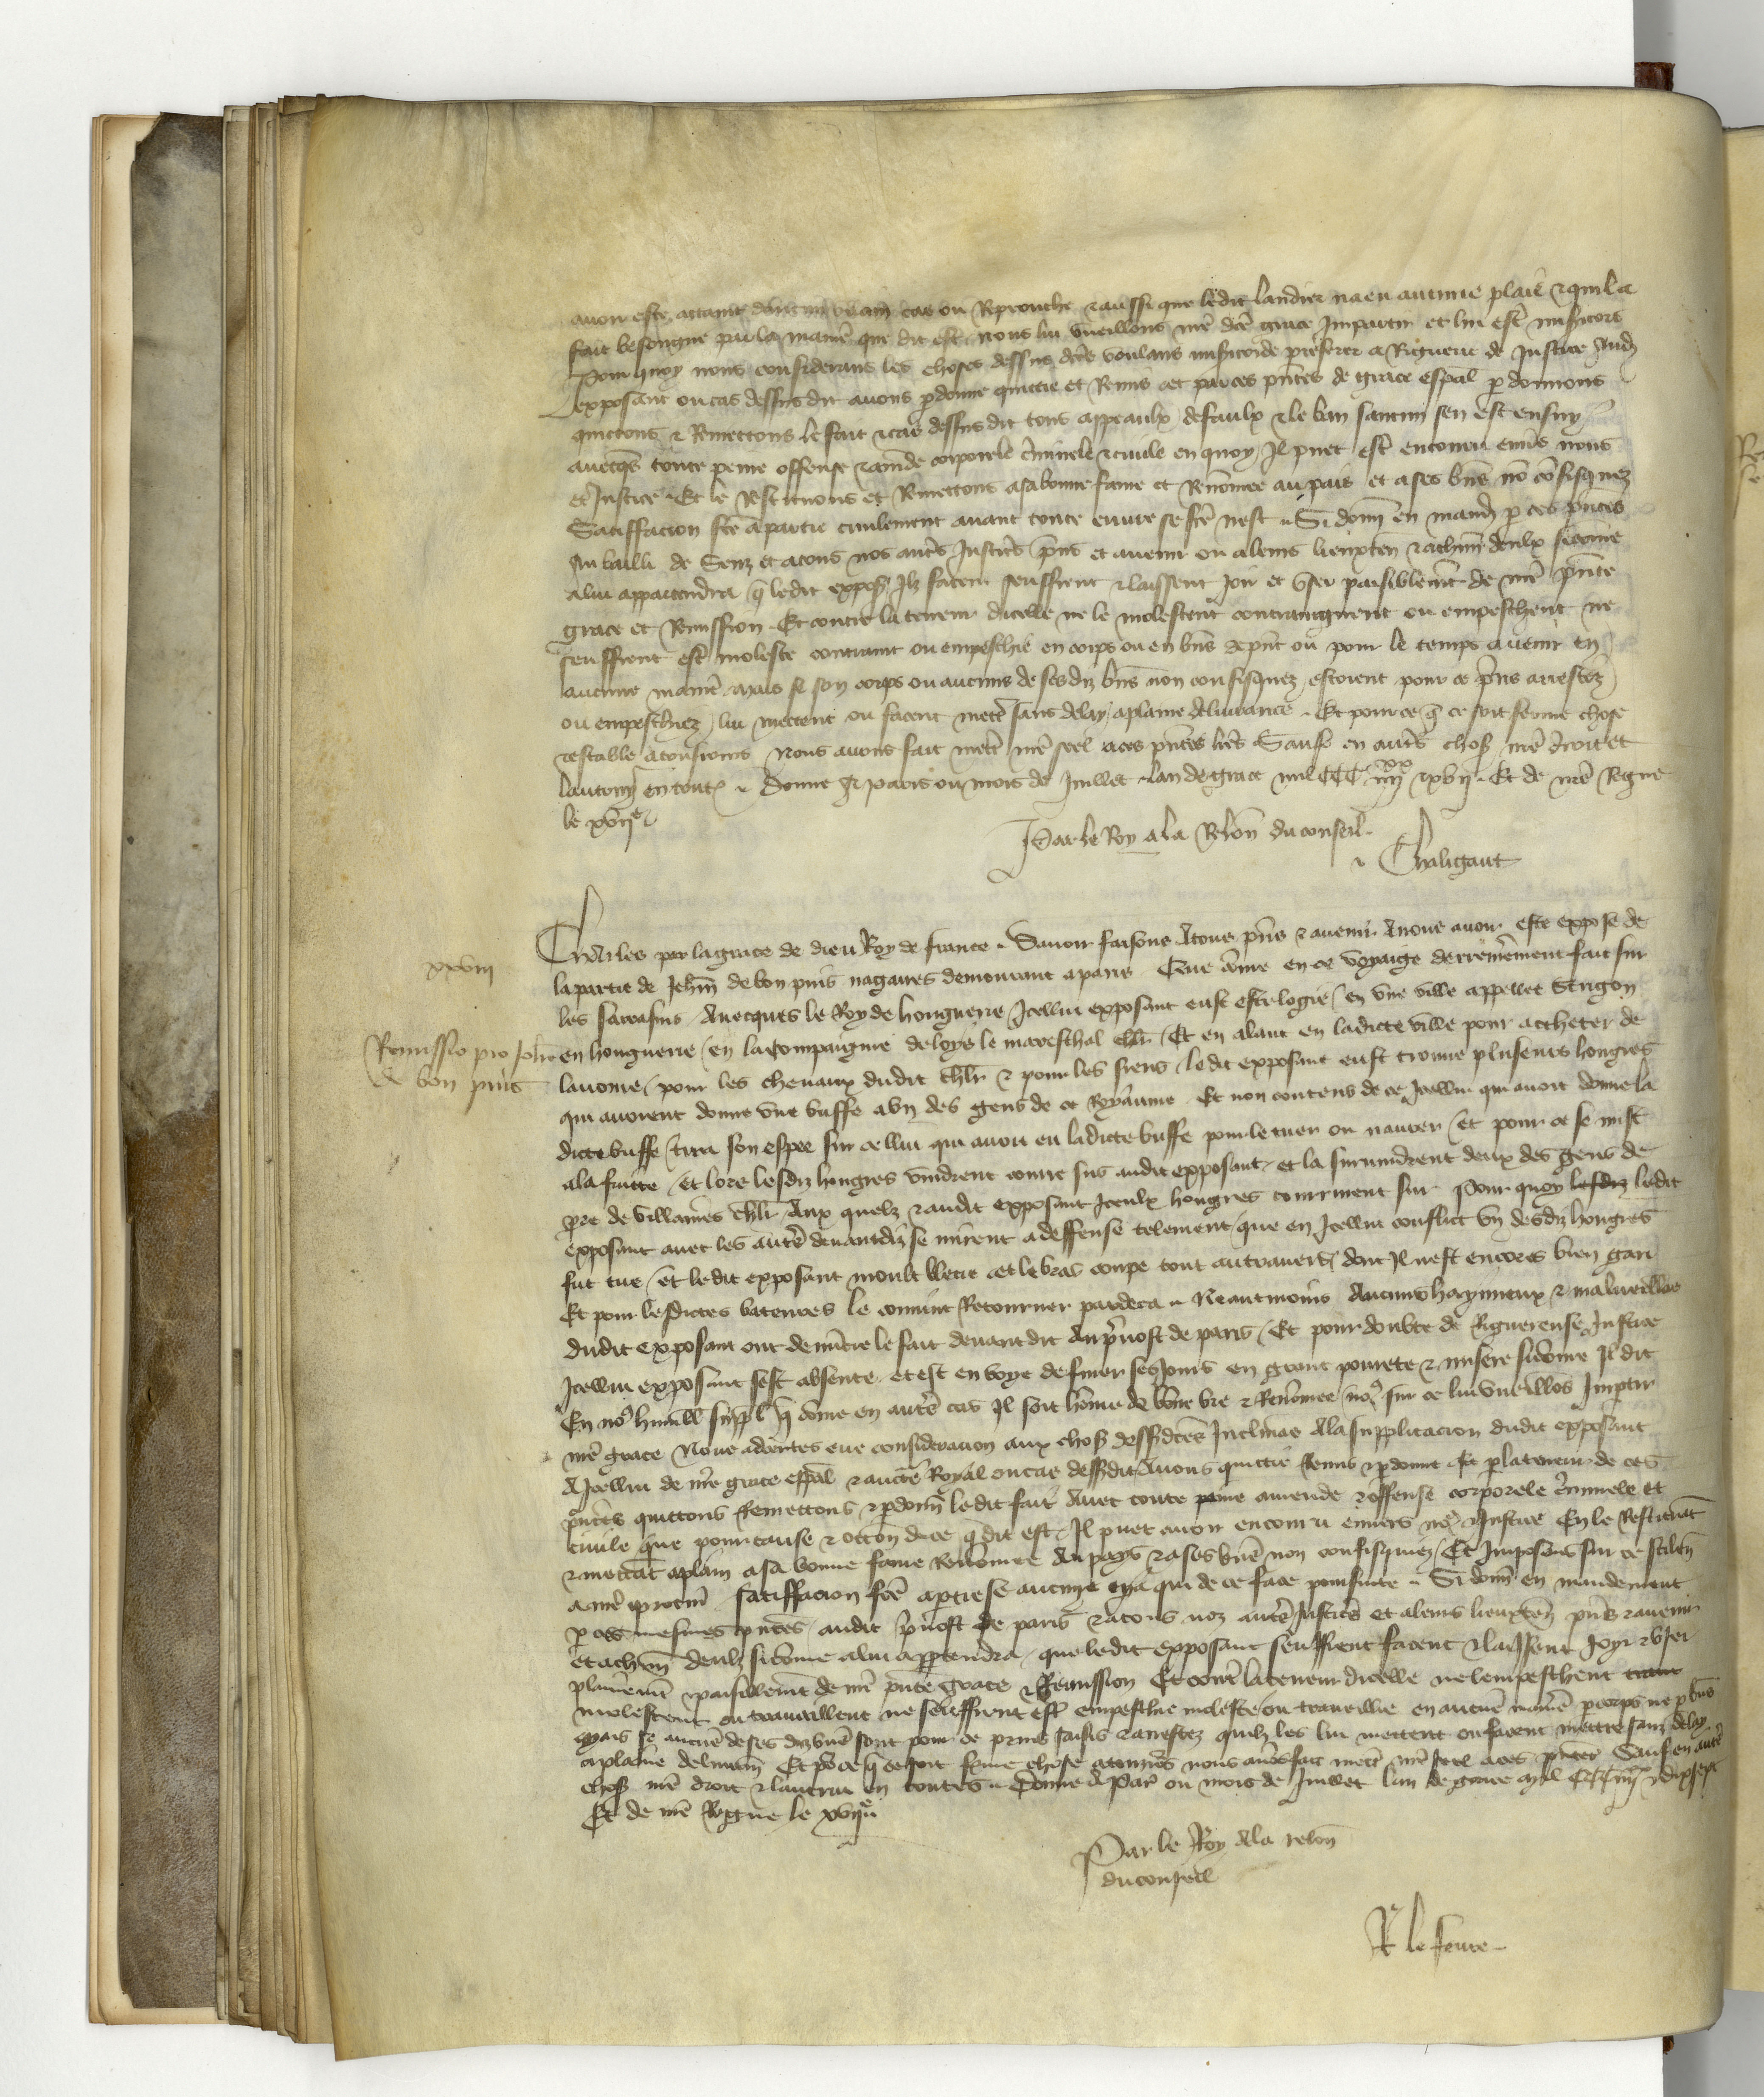 avoir este attaint daucun vilain cas ou Reprouche & aussi que ledit landier na eu aucune plaie & quil a
fait besongne par la maniē que dit est nous lui vueillons nrē dcē grace Impartir et lui estre misericors
Pour quoy nous considerans les choses dessus dctēs voulans misericorde preferer a Rigueur de Justice Audit
exposant ou cas dessusdit avons pdonne quittie et Remis et par ces pntēs de grace espāl pdonnons
quittons & Remettons le fait & cas dessusdit tous appeaulx defaulx & le ban saucun sen est ensuy
avecqs toute peine offense & amēde corporele cīminele & civile en quoy Il puet estre encouru envs nous
et Justice Et le Restituons et Remettons a sa bonne fame et Renōmee au pais et a ses bns nō cōfisquez
Satiffacion fctē a partie civilement avant toute euvre se fctē nest Si donn en mandt p ces pntēs
Au bailli de Senz et a tous nos autrs Justicrs pns et avenir ou a leurs lieuxten & a chūn deulx si cōme
a lui appartendra q ledit expost Ilz facent seuffrent & laissent Joir et user paisiblemt de nrē pnte
grace et Remission Et contre la teneur dicelle ne le molestent contraingnent ou empeschent ne
seuffrent estre moleste contraint ou empeschie en corps ou en bns a pnt ou pour le temps avenir en
aucune maniē mais se son corps ou aucuns de ses diz bns non confisquez estoient pour ce prins arrestez
ou empeschiez lui mettent ou facent mettre sans delay a plaine delivrance Et pour ce q ce soit ferme chose
& estable a tousjours Nous avons fait mettre nrē seel a ces pntēs lettrs Sauf en autrs choses nrē droit et
lautruy en toutes Donne a paris ou mois de Juillet lan de grace mil CCC iiij xx & xvij Et de nrē Regne
le xvije
Par le Roy a la Relōn du conseil
Chaligaut
Charles par la grace de dieu Roy de france Savoir faisons A tous pns & avenir A nous avoir este expose de
xxviij
la partie de Jehan de bon puis nagaires demourant a paris Que cōme en ce voyaige derrenierement fait sur
les sarrasins Avecques le Roy de honguerie Icellui exposant eust este logie en une ville appellee Strigon
Remissio pro Johe
de bon puis
en honguerie en la compaignie de loys le mareschal chlr Et en alant en ladicte ville pour acheter de
lavoine pour les chevaux dudit chlr & pour les siens ledit exposant eust trouve plusieurs hongres
qui avoient donne une buffe a un des gens de ce Royaume Et non contens de ce Icellui qui avoit donne la
dicte buffe tira son espee sur cellui qui avoit eu ladicte buffe pour le tuer ou navrer et pour ce se mist
a la fuitte Et lors lesdiz hongres vindrent courre sus audit exposant et la survindrent deux des gens de
pre de villaines chlr Aux quelz & audit exposant Iceulx hongres coururent sur Pour quoy lesdiz ledit
exposant avec les autres devantdiz se mirent a deffense telement que en Icellui conflict un desdiz hongres
fut tue et ledit exposant moult blecie et le bras coupe tout autravers dont Il nest encores bien gari
Et pour lesdictes bateures le convint Retourner par deca Neantmoins Aucuns hayneux & malveillans
dudit exposant ont denūcie le fait devant dit Au pvost de paris Et pour doubte de Rigueureuse Justice
Icellui exposant sest absente et est en voye de finer ses Jours en grant povrete & misere si cōme Il dit
En nos humblt suppl q cōme en autrs cas Il soit hōme de bōne vie & Renōmee nos sur ce lui vueillōs Imptir
nrē grace Nous adcertes eue consideracion aux choses dessdctēs Inclinās A la supplicacion dudit exposant
A Icellui de nrē grace espāl & auctē Royal ou cas dessdit Avons quittie Remis & pdonne & p la teneur de ces
pntēs quittons Remettons & pdonn ledit fait Avec toute peine amende & offense corporele cīminele et
civile que pour cause & occōn dice q dit est Il puet avoir encouru envers nos & Justice En le Restituāt
& mettāt a plain a sa bonne fame Renōmee Au pays & a ses bns non confisquez Et Imposons sur ce silēn
a nrē procur Satiffacion fctē a ptie se aucune en ya qui de ce face poursuite Si donn en mandement
p ces mesmes pntēs audit pvost de paris & a tous noz autrs Justicrs et a leurs lieuxten pns & avenir
et a chūn deulz si cōme a lui apptendra que ledit exposant seuffrent facent & laissent Joyr & user
plainemt & paisiblemt de nrē pnte grace & Remission Et contre la teneur dicelle ne lempeschent
molestent ou travaillent ne seuffrent estre empeschie moleste ou travaillie en aucune maniē p corps ne p bns
Mais se aucuns de ses diz bns sont pour ce prins saisis & arrestez quilz les lui mettent ou facent mettre sanz delay
a plaine delivrān Et pour ce q ce soit ferme chose a tousjrs nous avōs fait mettre nrē seel a ces pntēs Sauf en autrs
choses nrē droit & lautrui en toutes Donne A Par ou mois de Juillet lan de grace mil CCC iiij xx & dixsept
Et de nrē Regne le xvije
Par le Roy A la relōn
du conseil
R le fevre